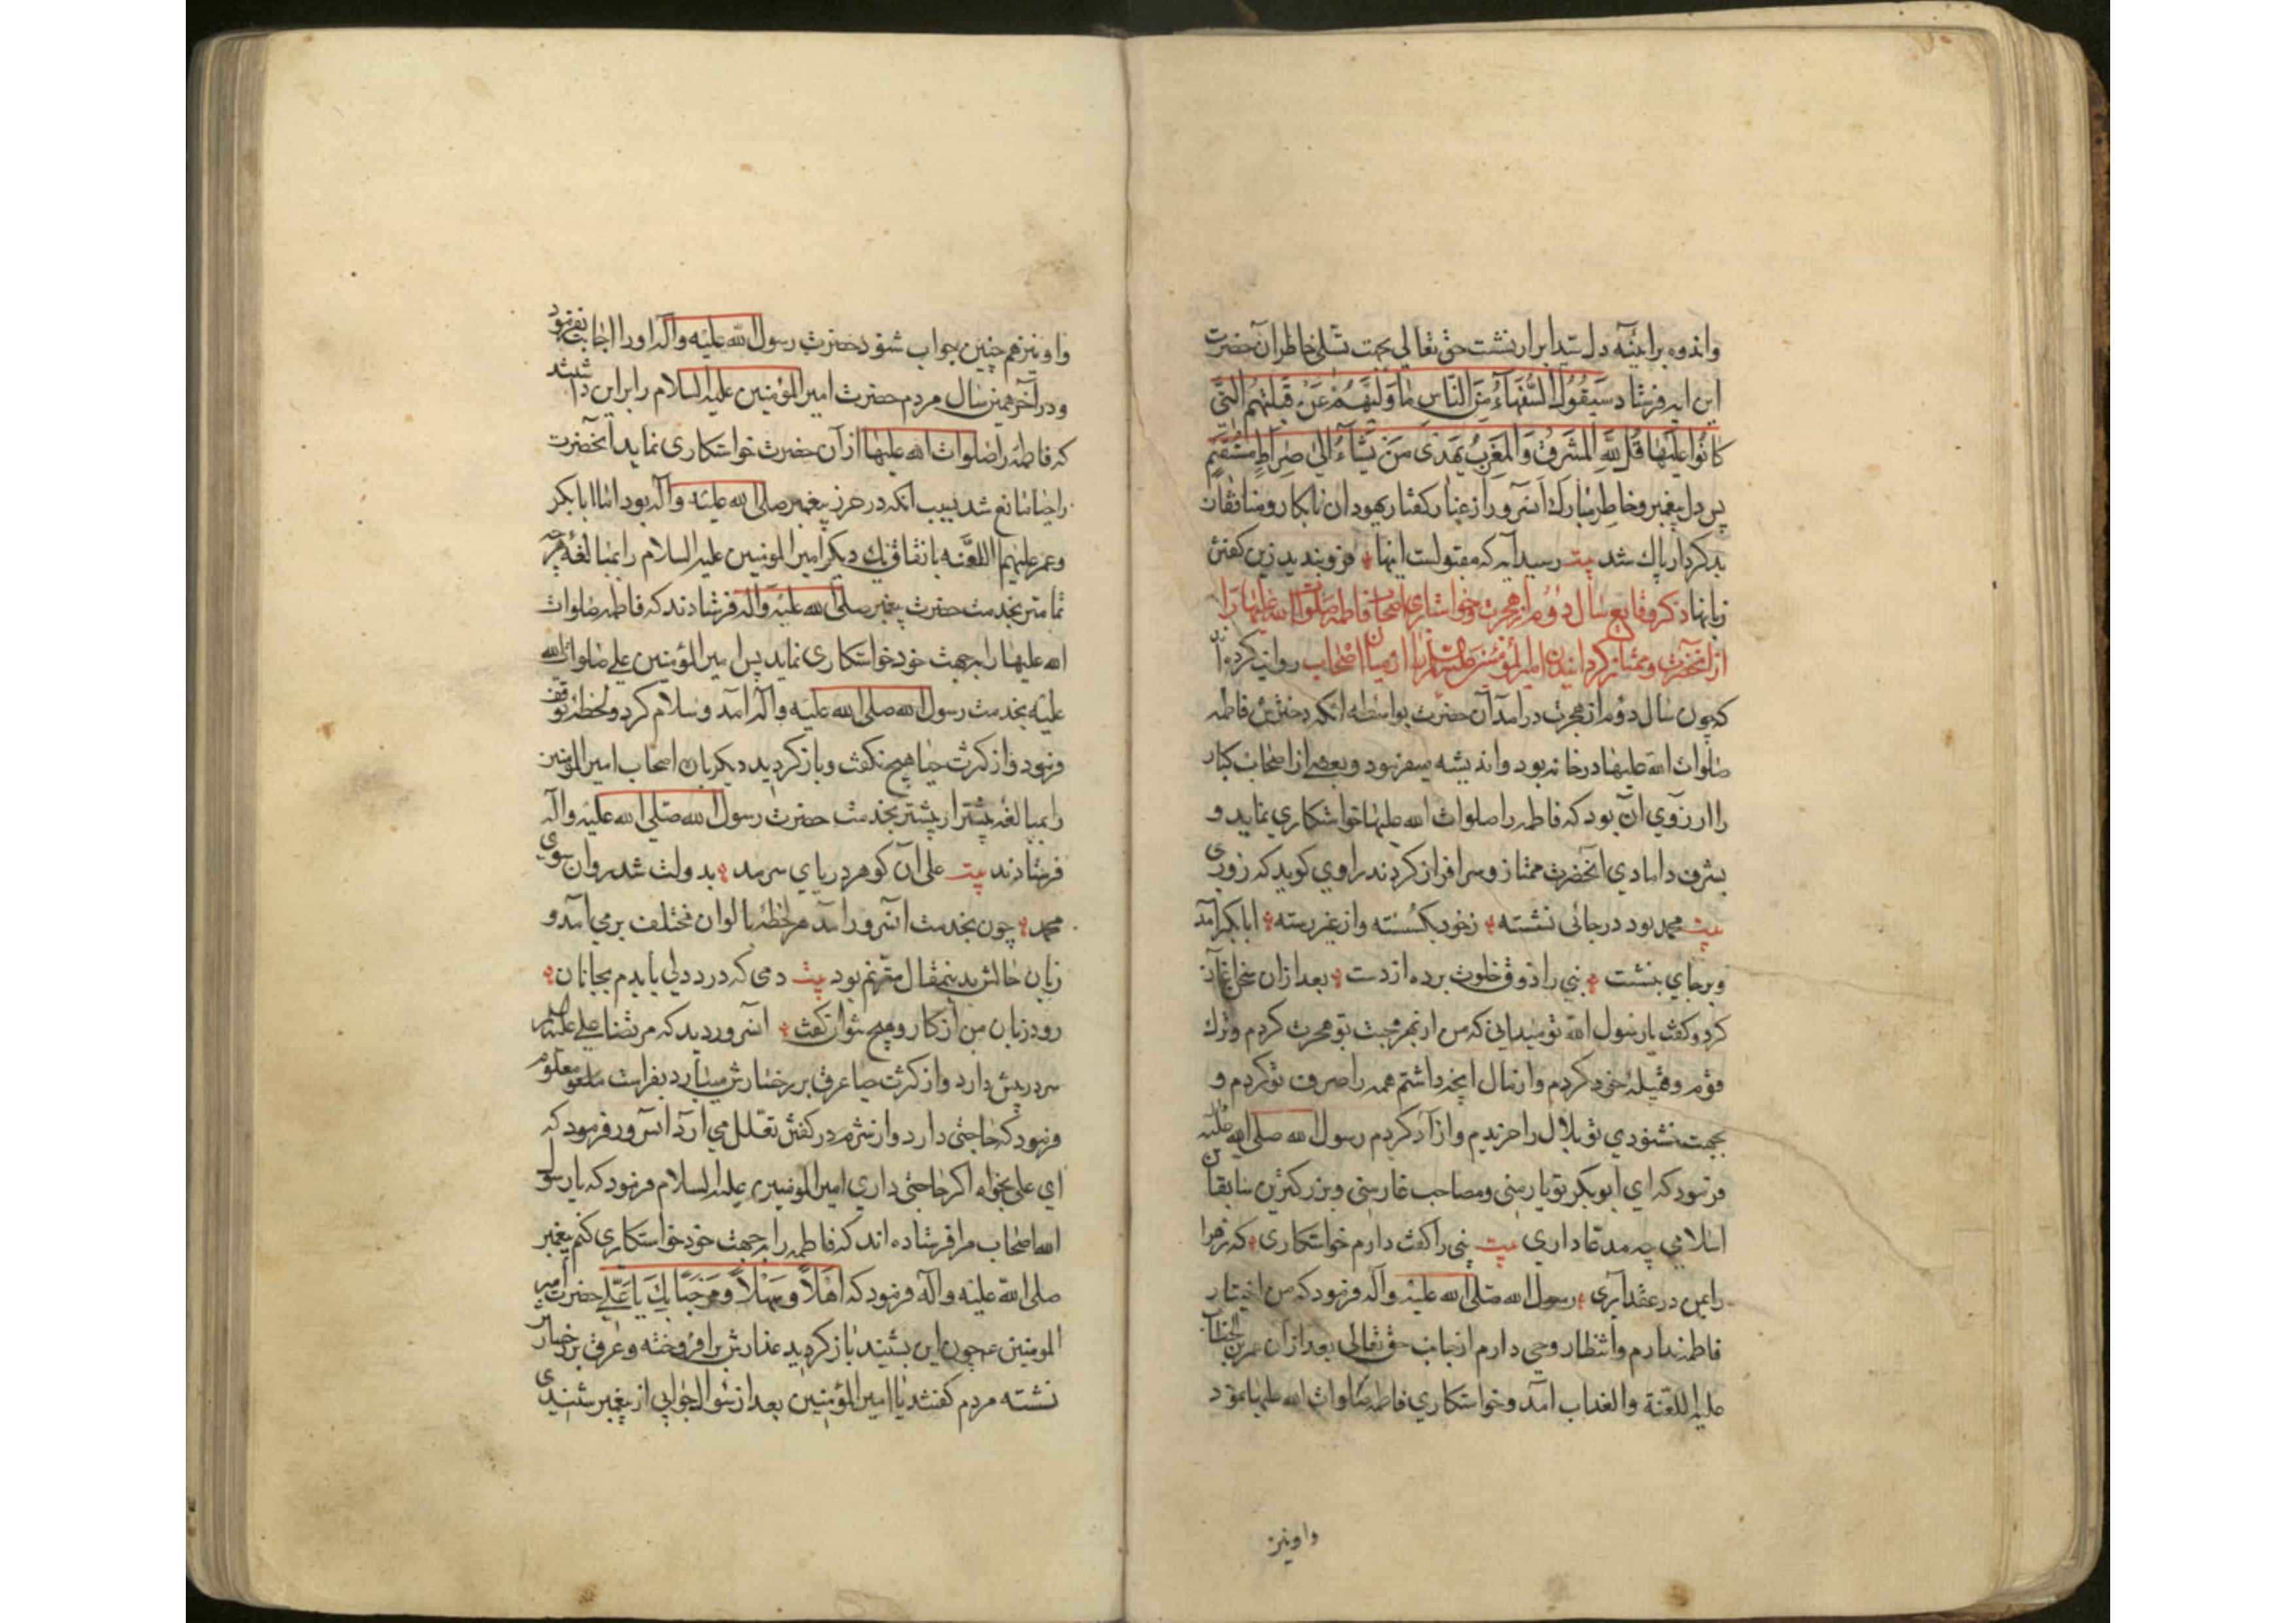 واندوه برآینهٔ دل سید ابرار نشست حق تعالی بجهت تسلی خاطر آن حضرت
این ایه فرستاد سَیَقُولُ السُّفَهَآءُ مِنَ النَّاسِ مَا وَلّٰیهُمْ عَنْ قِبْلَتِهِمُ الَّتِی
کَانُوا عَلَیْهَا قُلْ لِلّٰهِ الْمَشْرِقُ وَالْمَغْرِبُ یَهْدِی مَنْ یَشَآءُ اِلیٰ صِرَاطٍ مُسْتَقِیمٍ
پس دل پیغمبر و خاطر مبارک آنسرور از غبار کفتار یهودان نابکار و منافقان
بدکردار پاک شد بیت رسید آیه که مقبولست اینها فروبندید زین کفتن
زبانها ذکر وقایع سال دوم از هجرت وخواستاری اصحاب فاطمه صلوات الله علیها را
از آنحضرت وممتاز کردانیدن امیرالمؤمنین را از میان اصحاب روایت کرده اند
که چون سال دوم از هجرت درآمد آن حضرت بواسطه انکه دخترش فاطمه
صلوات الله علیها درخانه بود واندیشه میفرمود وبعضی از اصحاب کبار
را ارزوی آن بود که فاطمه را صلوات الله علیها خواستکاری نماید و
بشرف دامادی آنحضرت ممتاز وسرافراز کردند راوی کوید که روزی
بیت محمد بود درجائی نشسته زخود بکسسته واز غیر رسته ابابکر آمد
وبرجای بنشست نبی را ذوق خلوت برده از دست بعد ازان سخن اغاز
کرد وکفت یا رسول الله تو میدانی که من از بهر محبت تو هجرت کردم وترک
قوم وقبیلهٔ خود کردم واز مال انچه داشتم همه را صرف تو کردم و
بجهت خشنودی تو بلال را خریدم وازاد کردم رسول الله صلی الله علیه
فرمود که ای ابوبکر تو یار منی ومصاحب غار منی وبزرکترین سابقان
اسلامی چه مدعا داری بیت نبی را کفت دارم خواستکاری که زهرا
را بمن در عقد آری رسول الله صلی الله علیه وآله فرمود که من اختیار
فاطمه ندارم وانتظار وحی دارم از جانب حق تعالی بعد ازان عمر بن الخطاب
علیه اللعنة والعذاب آمد وخواستکاری فاطمه صلوات الله علیها نمود
واو نیز
واو نیز هم چنین جواب شنود حضرت رسول الله علیه وآله او را اجابت نفرمود
ودر آخر همین سال مردم حضرت امیرالمؤمنین علیه السلام را براین داشتند
که فاطمه را صلوات الله علیها از آن حضرت خواستکاری نماید آنحضرت
را حیا مانع شد بسبب انکه در حرز پیغمبر صلی الله علیه وآله بود اما ابابکر
وعمر علیهم اللعنه باتفاق یک دیکر امیرالمومنین علیه السلام را بمبالغهٔ هرچه
تمامتر بخدمت حضرت پیغمبر صلی الله علیه وآله فرستادند که فاطمه صلوات
الله علیها را بجهت خود خواستکاری نماید پس امیرالمؤمنین علی صلوات الله
علیه بخدمت رسول الله صلی الله علیه وآله آمد وسلام کرد ولحظهٔ توقف
فرمود واز کثرت حیا هیچ نکفت وباز کردید دیکر باره اصحاب امیرالمومنین
را بمبالغهٔ بیشتر از پیشتر بخدمت حضرت رسول الله صلی الله علیه وآله
فرستادند بیت علی آن کوهر دریای سرمد بدولت شد روان سوی
محمد چون بخدمت آنسرور آمد هر لحظه بالوان مختلف برمی آمد و
زبان حالش بدینمقال مترنم بود بیت دمی که درد دلی یابدم بجانان
رود زبان من از کار وهیچ نتوان کفت آنسرور دید که مرتضا علی علیه السلام
سر در پیش دارد واز کثرت حیا عرق بر رخسارش میبارد بفراست معلوم
فرمود که حاجتی دارد واز شرم در کفتن تعلل می آرد آنسرور فرمود که
ای علی بخواه اکر حاجتی داری امیرالمومنین علیه السلام فرمود که یا رسول
الله اصحاب مرا فرستاده اند که فاطمه را بجهت خود خواستکاری کنم پیغمبر
صلی الله علیه وآله فرمود که اَهْلاً وسَهْلاً ومَرْحَبًا بِکَ یَا عَلِی حضرت امیر
المومنین ع چون این بشنید باز کردید عذارش برافروخته وعرق بر رخسار
نشسته مردم کفتند یا امیرالمؤمنین بعد از سؤال جوابی از پیغمبر شنیدی